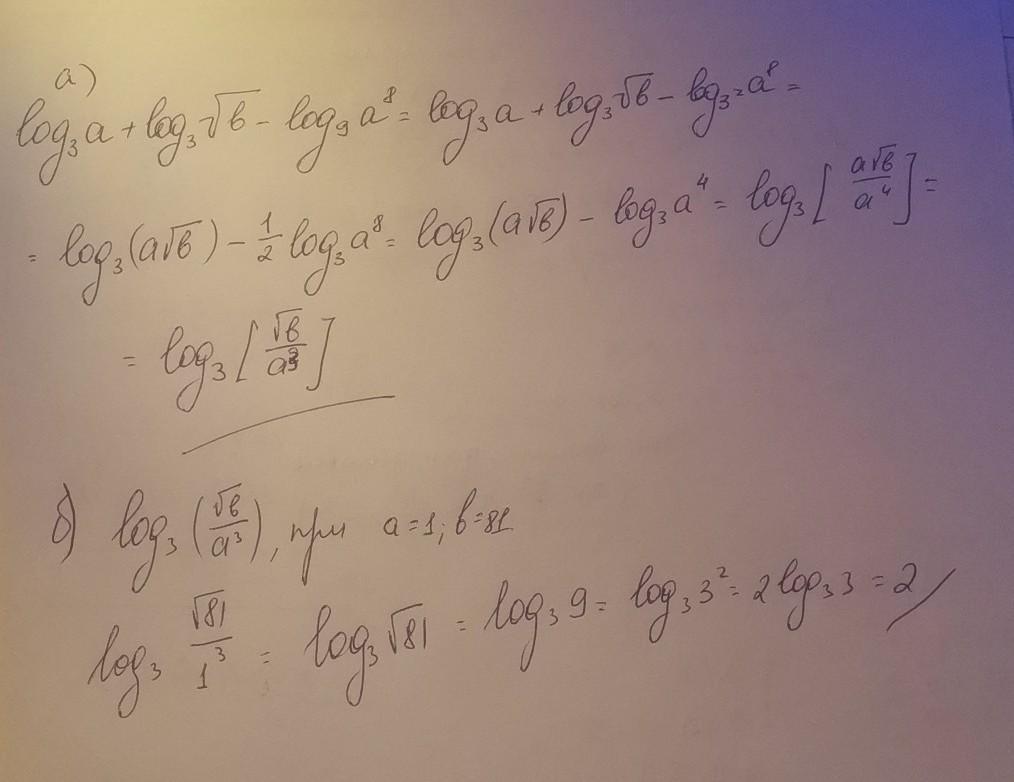 а)
log₃a + log₃√b - log₉a⁸ = log₃a + log₃√b - log₃²a⁸ =
= log₃(a√b) - 1/2 log₃a⁸ = log₃(a√b) - log₃a⁴ = log₃[a√b/a⁴] =
= log₃[√b/a³]
б) log₃(√b/a³), при a=1; b=81
log₃ √81/1³ = log₃√81 = log₃9 = log₃3² = 2log₃3 = 2